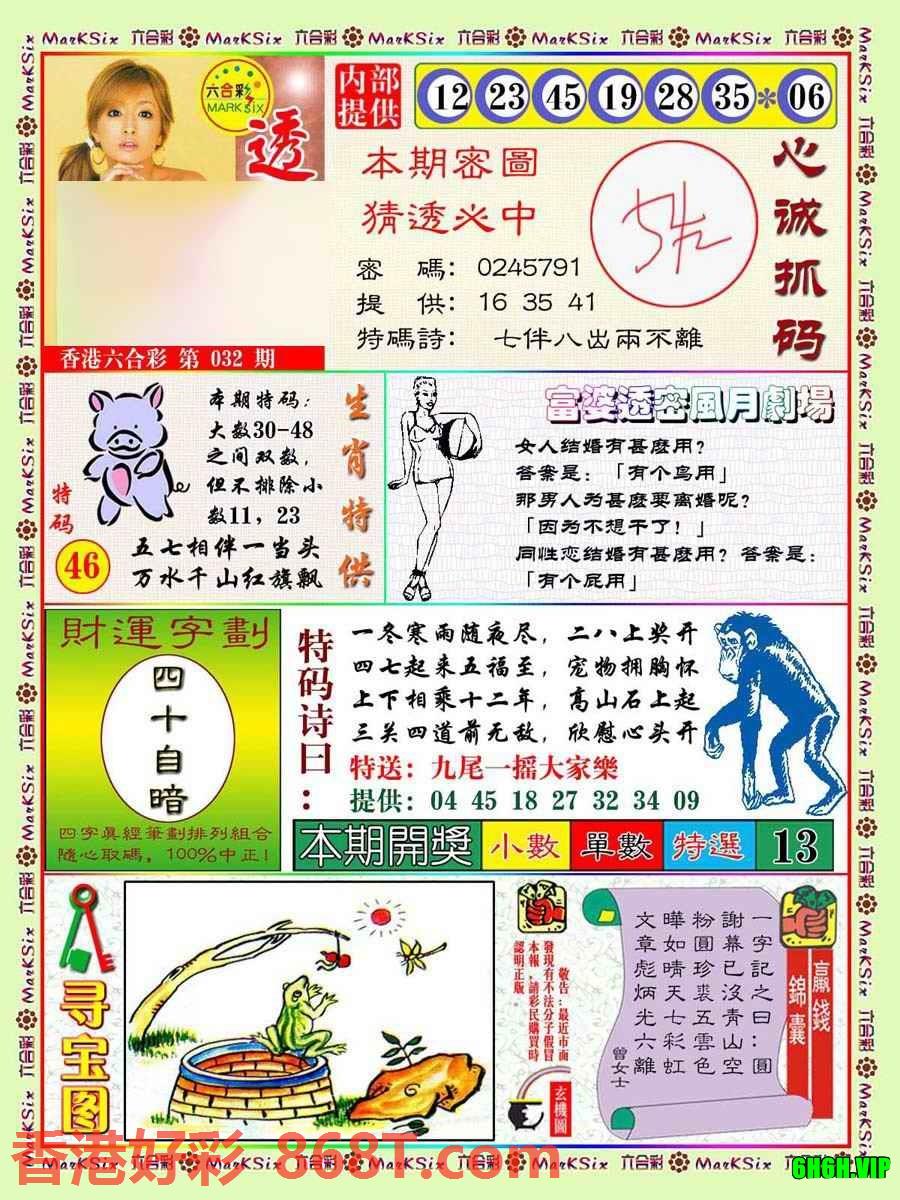 MarKSix 六合彩 MarKSix 六合彩 MarKSix 六合彩 MarKSix 六合彩 MarKSix 六合彩
六合彩
MARK SIX
透
内部
提供
12 23 45 19 28 35 * 06
本期密圖
猜透必中
密 碼: 0245791
提 供: 16 35 41
特碼詩: 七伴八出兩不離
心诚抓码
香港六合彩 第 032 期
本期特码:
大数30-48
之间双数,
但不排除小
数11, 23
五七相伴一当头
万水千山红旗飘
特码
46
生肖特供
富婆透密風月劇場
女人结婚有甚麽用?
答案是: 「有个鸟用」
那男人为甚麽要离婚呢?
「因为不想干了! 」
同性恋结婚有甚麽用? 答案是:
「有个屁用」
財運字劃
四十自暗
四字眞經筆劃排列組合
隨心取碼, 100%中正!
特码诗曰:
一冬寒雨随夜尽, 二八上奖开
四七起来五福至, 宠物拥胸怀
上下相乘十二年, 高山石上起
三关四道前无敌, 欣慰心头开
特送: 九尾一摇大家樂
提供: 04 45 18 27 32 34 09
本期開獎 小數 單數 特選 13
寻宝图
敬告:最近市面
發現有不法分子假冒
本報,請彩民購買時
認明正版。
玄機圖
一字記之曰:圓
謝幕已沒青山空
粉圓珍裘五雲色
曄如晴天七彩虹
文章彪炳光六離
曾女士
贏錢
錦囊
香港好彩.868T.com
MarKSix 六合彩 MarKSix 六合彩 MarKSix 六合彩 MarKSix 六合彩 MarKSix
6H6H.VIP